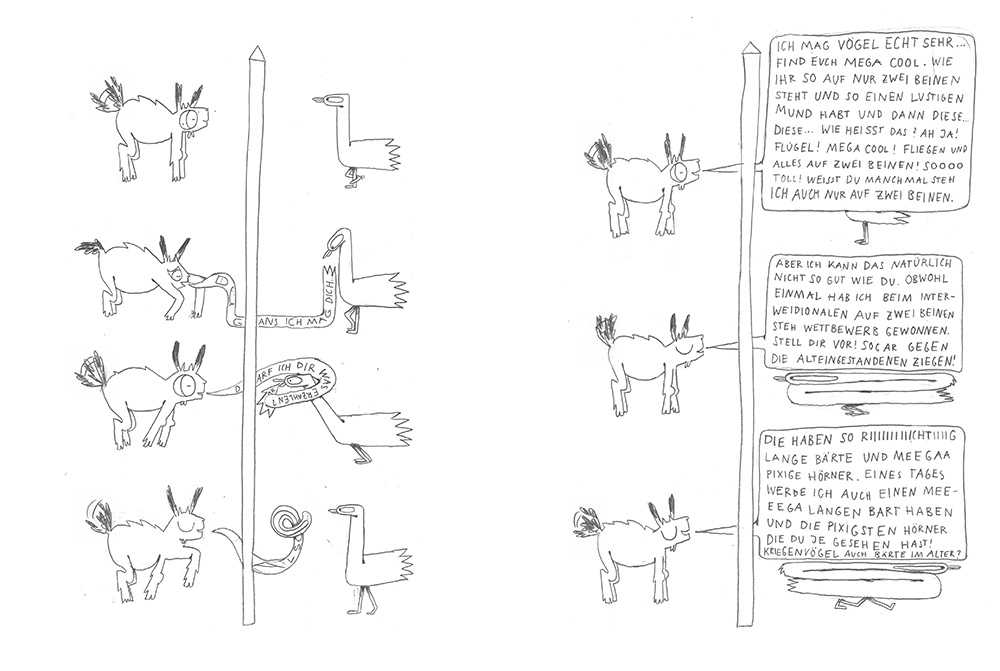 GANS ICH MAG DICH...
DARF ICH DIR WAS
ERZÄHLEN?
ICH MAG VÖGEL ECHT SEHR...
FIND EUCH MEGA COOL. WIE
IHR SO AUF NUR ZWEI BEINEN
STEHT UND SO EINEN LUSTIGEN
MUND HABT UND DANN DIESE...
DIESE... WIE HEISST DAS? AH JA!
FLÜGEL! MEGA COOL! FLIEGEN UND
ALLES AUF ZWEI BEINEN! SOOOO
TOLL! WEISST DU MANCHMAL STEH
ICH AUCH NUR AUF ZWEI BEINEN.
ABER ICH KANN DAS NATÜRLICH
NICHT SO GUT WIE DU. OBWOHL
EINMAL HAB ICH BEIM INTER-
WEIDIONALEN AUF ZWEI BEINEN
STEH WETTBEWERB GEWONNEN.
STELL DIR VOR! SOGAR GEGEN
DIE ALTEINGESTANDENEN ZIEGEN!
DIE HABEN SO RIIIIIIIIIICHTIIIIIG
LANGE BÄRTE UND MEEGAA
PIXIGE HÖRNER. EINES TAGES
WERDE ICH AUCH EINEN MEE-
EEGA LANGEN BART HABEN
UND DIE PIXIGSTEN HÖRNER
DIE DU JE GESEHEN HAST!
KRIEGEN VÖGEL AUCH BÄRTE IM ALTER?